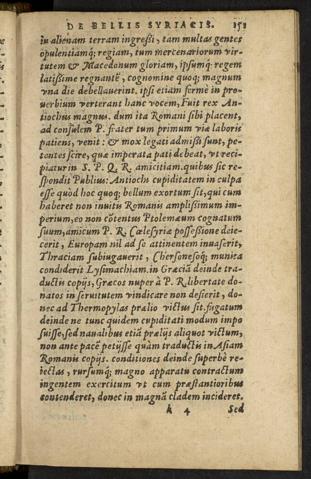 DE BELLIS SYRIACIS. 151
in alienam terram ingressi, tam multas gentes
opulentiamq; regiam, tum mercenariorum vir-
tutem & Macedonum gloriam, ipsumq; regem
latissime regnantē, cognomine quoq; magnum
vna die debellauerint. ipsi etiam fermè in pro-
uerbium verterant hanc vocem, Fuit rex An-
tiochus magnus. dum ita Romani sibi placent,
ad consulem P. frater tum primum via laboris
patiens, venit: & mox legati admissi sunt, pe-
tentes scire, quæ imperata pati debeat, vt reci-
piatur in S. P. Q. R. amicitiam. quibus sic re-
spondit Publius: Antiochi cupiditatem in culpa
esse quòd hoc quoq; bellum exortum sit, qui cum
haberet non inuitis Romanis amplissimum im-
perium, eo non cōtentus Ptolemæum cognatum
suum, amicum P. R. Cœlesyriæ possessione deie-
cerit, Europam nil ad se attinentem inuaserit,
Thraciam subiugauerit, Chersonesoq; munita
condiderit Lysimachiam. in Græciā deinde tra-
ductis copijs, Græcos nuper à P. R. libertate do-
natos in seruitutem vindicare non desierit, do-
nec ad Thermopylas prælio victus sit. fugatum
deinde ne tunc quidem cupiditati modum impo
suisse, sed naualibus etiā prælijs aliquot victum,
non ante pacē petijsse quàm traductis in Asiam
Romanis copijs. conditiones deinde superbè re-
iectas, rursumq; magno apparatu contractum
ingentem exercitum vt cum præstantioribus
contenderet, donec in magnā cladem incideret.
k 4 Sed